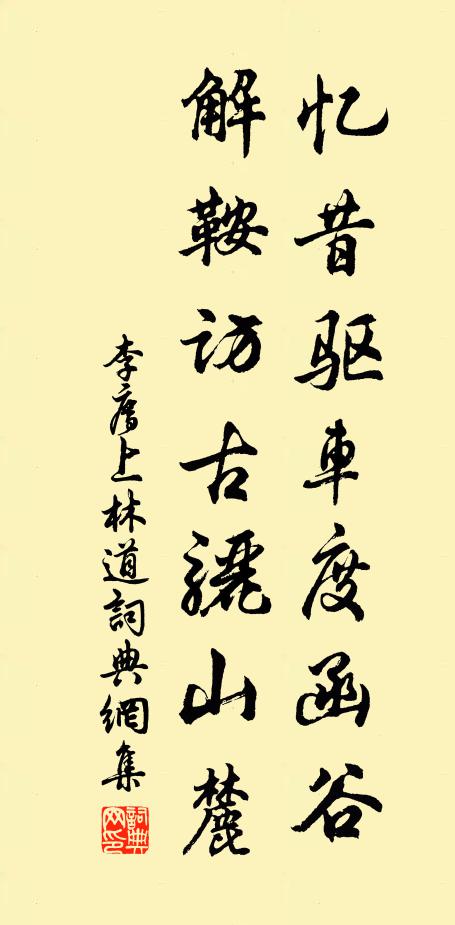 忆昔驱車度函谷
解鞍访古驪山麓
李上林道詞典網集
詞典网印